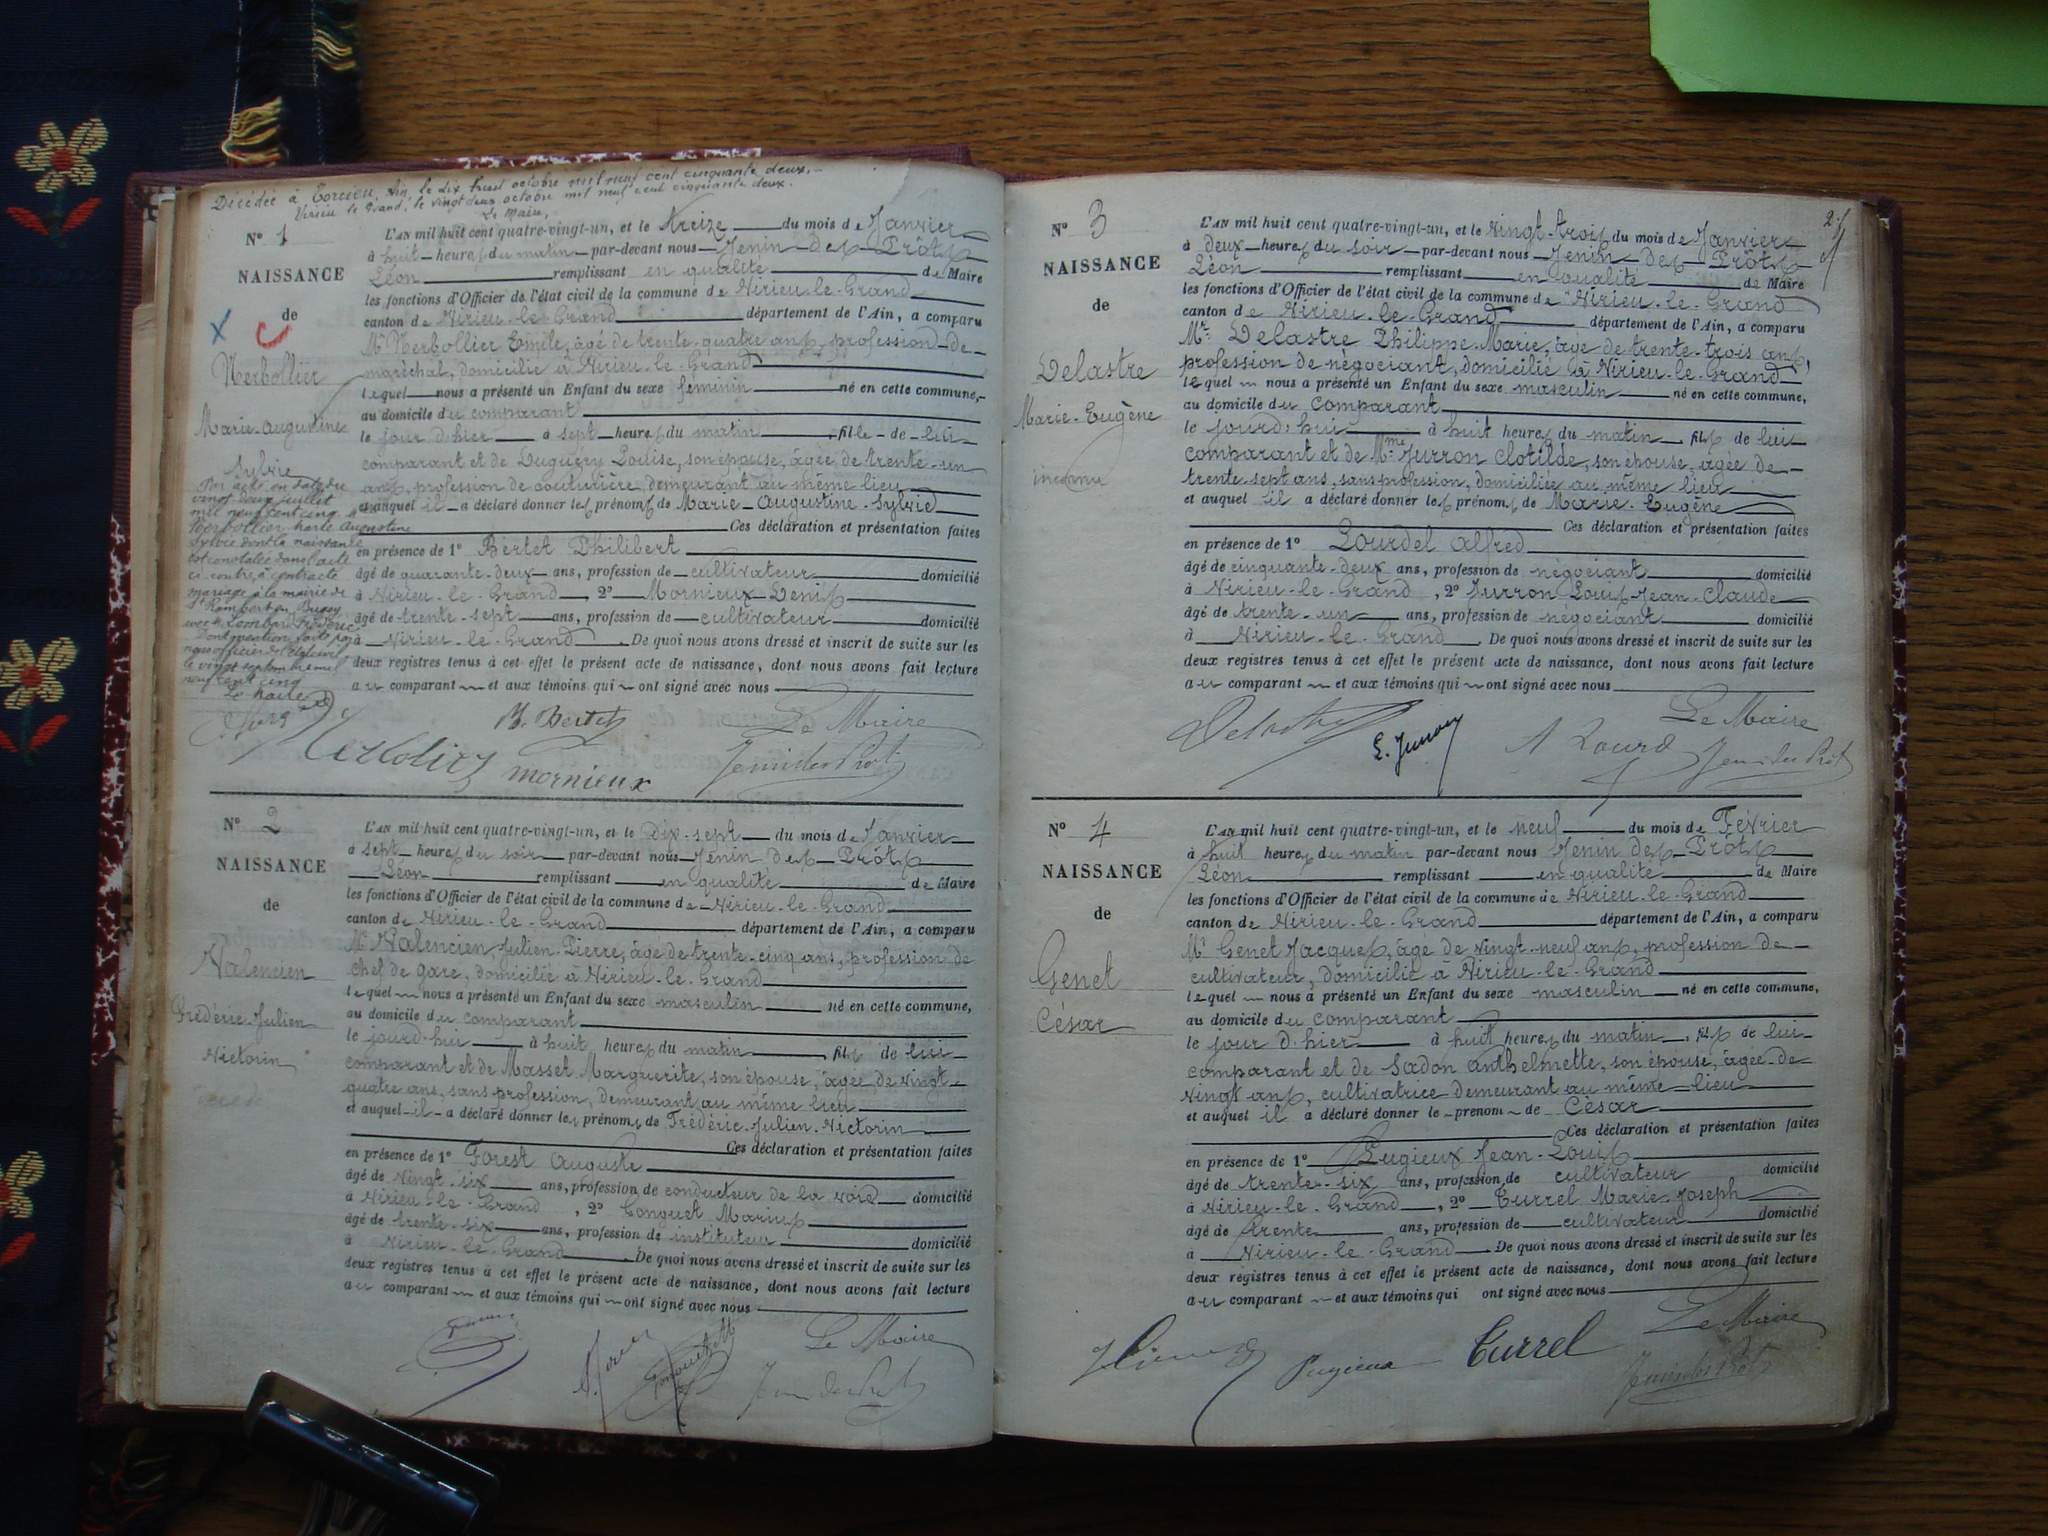 Décédée à Torcieu, Ain, le dix huit octobre mil neuf cent cinquante deux.
Virieu le Grand, le vingt deux octobre mil neuf cent cinquante deux.
Le Maire,
N° 1
NAISSANCE
de
Verbollier
Marie-Augustine
Sylvie
Par acte en date du
vingt deux juillet
mil neuf cent cinq
Verbollier Marie Augustine
Sylvie dont la naissance
est constatée dans l'acte
ci contre, a contracté
mariage à la mairie de
St Rambert en Bugey
avec
Dont mention faite par
nous officier de l'état civil
le vingt septembre mil
neuf cent cinq
Le Maire
L'AN mil huit cent quatre-vingt-un, et le treize du mois de Janvier
à huit heures du matin par-devant nous Jenin des Prôts
Léon remplissant en qualité de Maire
les fonctions d'Officier de l'état civil de la commune de Virieu-le-Grand
canton de Virieu-le-Grand département de l'Ain, a comparu
Mr Verbollier Emile, âgé de trente-quatre ans, profession de
maréchal, domicilié à Virieu-le-Grand
lequel nous a présenté un Enfant du sexe féminin né en cette commune,
au domicile du comparant
le jour d'hier à sept heures du matin, fille de lui
comparant et de Duguéry Louise, son épouse, âgée de trente-un
ans, profession de couturière, demeurant au même lieu
et auquel il a déclaré donner les prénoms de Marie-Augustine-Sylvie
Ces déclaration et présentation faites
en présence de 1° Bertet Philibert
âgé de quarante-deux ans, profession de cultivateur domicilié
à Virieu-le-Grand, 2° Mornieux Denis
âgé de trente-sept ans, profession de cultivateur domicilié
à Virieu-le-Grand. De quoi nous avons dressé et inscrit de suite sur les
deux registres tenus à cet effet le présent acte de naissance, dont nous avons fait lecture
au comparant et aux témoins qui ont signé avec nous
Bertet Le Maire
mornieux Jenin des Prôts
N° 2
NAISSANCE
de
Valencien
Frédéric-Julien
Victorin
L'AN mil huit cent quatre-vingt-un, et le dix-sept du mois de Janvier
à sept heures du soir par-devant nous Jenin des Prôts
Léon remplissant en qualité de Maire
les fonctions d'Officier de l'état civil de la commune de Virieu-le-Grand
canton de Virieu-le-Grand département de l'Ain, a comparu
Mr Valencien, Julien Pierre, âgé de trente-cinq ans, profession de
chef de gare, domicilié à Virieu-le-Grand
lequel nous a présenté un Enfant du sexe masculin né en cette commune,
au domicile du comparant
le jourd'hui à huit heures du matin, fils de lui
comparant et de Masset Marguerite, son épouse, âgée de vingt-
quatre ans, sans profession, demeurant au même lieu
et auquel il a déclaré donner les prénoms de Frédéric-Julien-Victorin
Ces déclaration et présentation faites
en présence de 1° Forest Auguste
âgé de vingt-six ans, profession de conducteur de la voie domicilié
à Virieu-le-Grand, 2° Marius
âgé de trente-six ans, profession de instituteur domicilié
à Virieu-le-Grand. De quoi nous avons dressé et inscrit de suite sur les
deux registres tenus à cet effet le présent acte de naissance, dont nous avons fait lecture
au comparant et aux témoins qui ont signé avec nous
Le Maire
Jenin des Prôts
2
N° 3
NAISSANCE
de
Delastre
Marie-Eugène
inconnu
L'AN mil huit cent quatre-vingt-un, et le vingt-trois du mois de Janvier
à deux heures du soir par-devant nous Jenin des Prôts
Léon remplissant en qualité de Maire
les fonctions d'Officier de l'état civil de la commune de Virieu-le-Grand
canton de Virieu-le-Grand département de l'Ain, a comparu
Mr Delastre Philippe-Marie, âgé de trente-trois ans,
profession de négociant, domicilié à Virieu-le-Grand
lequel nous a présenté un Enfant du sexe masculin né en cette commune,
au domicile du comparant
le jourd'hui à huit heures du matin, fils de lui
comparant et de Mme Jurron Clotilde, son épouse, âgée de
trente-sept ans, sans profession, domiciliée au même lieu
et auquel il a déclaré donner les prénoms de Marie-Eugène
Ces déclaration et présentation faites
en présence de 1° Lourdel Alfred
âgé de cinquante-deux ans, profession de négociant domicilié
à Virieu-le-Grand, 2° Jurron Louis-Jean-Claude
âgé de trente-un ans, profession de négociant domicilié
à Virieu-le-Grand. De quoi nous avons dressé et inscrit de suite sur les
deux registres tenus à cet effet le présent acte de naissance, dont nous avons fait lecture
au comparant et aux témoins qui ont signé avec nous
Le Maire
Delastre L. Jurron A Lourdel Jenin des Prôts
N° 4
NAISSANCE
de
Genet
César
L'AN mil huit cent quatre-vingt-un, et le neuf du mois de Février
à huit heures du matin par-devant nous Jenin des Prôts
Léon remplissant en qualité de Maire
les fonctions d'Officier de l'état civil de la commune de Virieu-le-Grand
canton de Virieu-le-Grand département de l'Ain, a comparu
Mr Genet Jacques, âgé de vingt-neuf ans, profession de
cultivateur, domicilié à Virieu-le-Grand
lequel nous a présenté un Enfant du sexe masculin né en cette commune,
au domicile du comparant
le jour d'hier à huit heures du matin, fils de lui
comparant et de Sadon Anthelmette, son épouse, âgée de
vingt ans, cultivatrice demeurant au même lieu
et auquel il a déclaré donner le prénom de César
Ces déclaration et présentation faites
en présence de 1° Pugieux Jean-Louis
âgé de trente-six ans, profession de cultivateur domicilié
à Virieu-le-Grand, 2° Turrel Marie-Joseph
âgé de trente ans, profession de cultivateur domicilié
à Virieu-le-Grand. De quoi nous avons dressé et inscrit de suite sur les
deux registres tenus à cet effet le présent acte de naissance, dont nous avons fait lecture
au comparant et aux témoins qui ont signé avec nous
Le Maire
Pugieux Turrel Jenin des Prôts